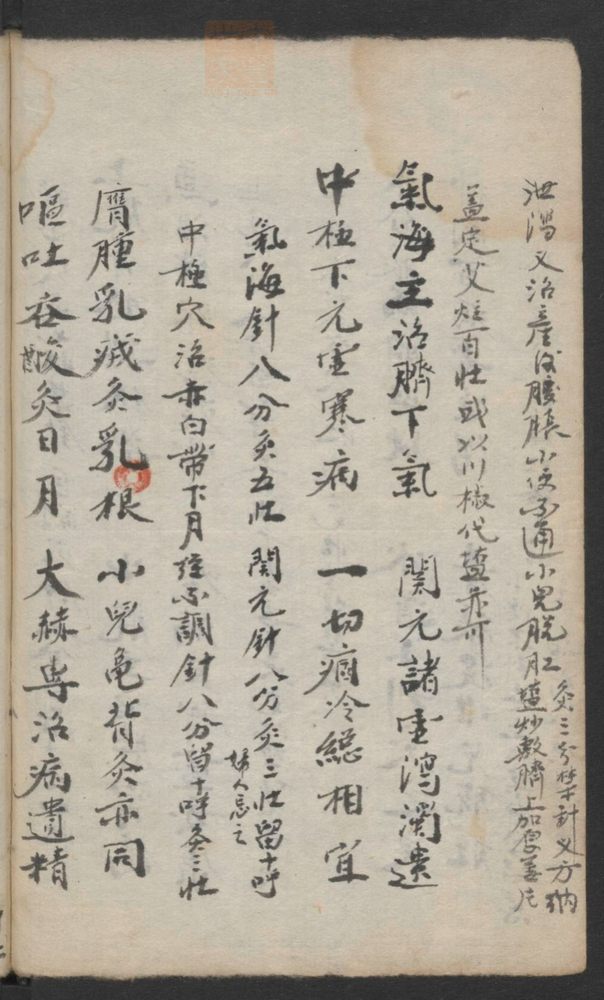 泄瀉又治產後腹脹小便不通小兒脫肛灸三分禁針又方納
塩炒敷臍上加厚姜片
蓋定艾炷百壯或以川椒代塩亦可
氣海主治臍下氣　關元諸虛瀉濁遺
中極下元虛寒病　一切痼冷總相宜
氣海針八分灸五壯　關元針八分灸三壯留十呼
婦人忌之
中極穴治赤白帶下月經不調針八分留十呼灸三壯
膺腫乳灸乳根　小兒龜背灸亦同
嘔吐吞酸灸日月　大赫專治病遺精